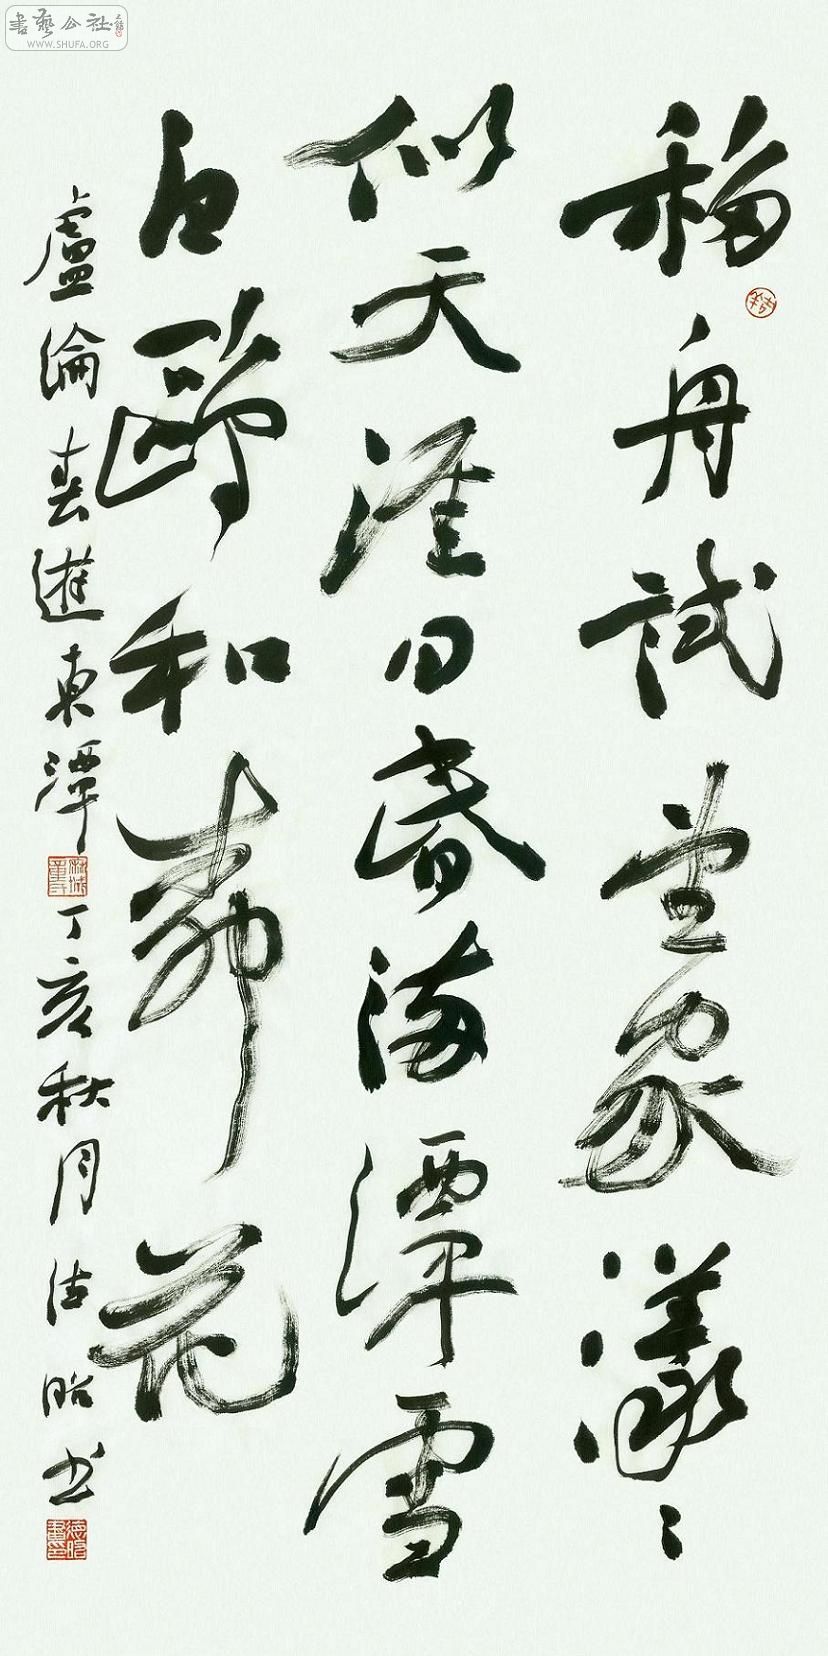 書藝公社
WWW.SHUFA.ORG
移舟試望家漾〻
似天涯日暮满潭雪
白鷗和柳花
盧綸春遊東潭
丁亥秋月昭书